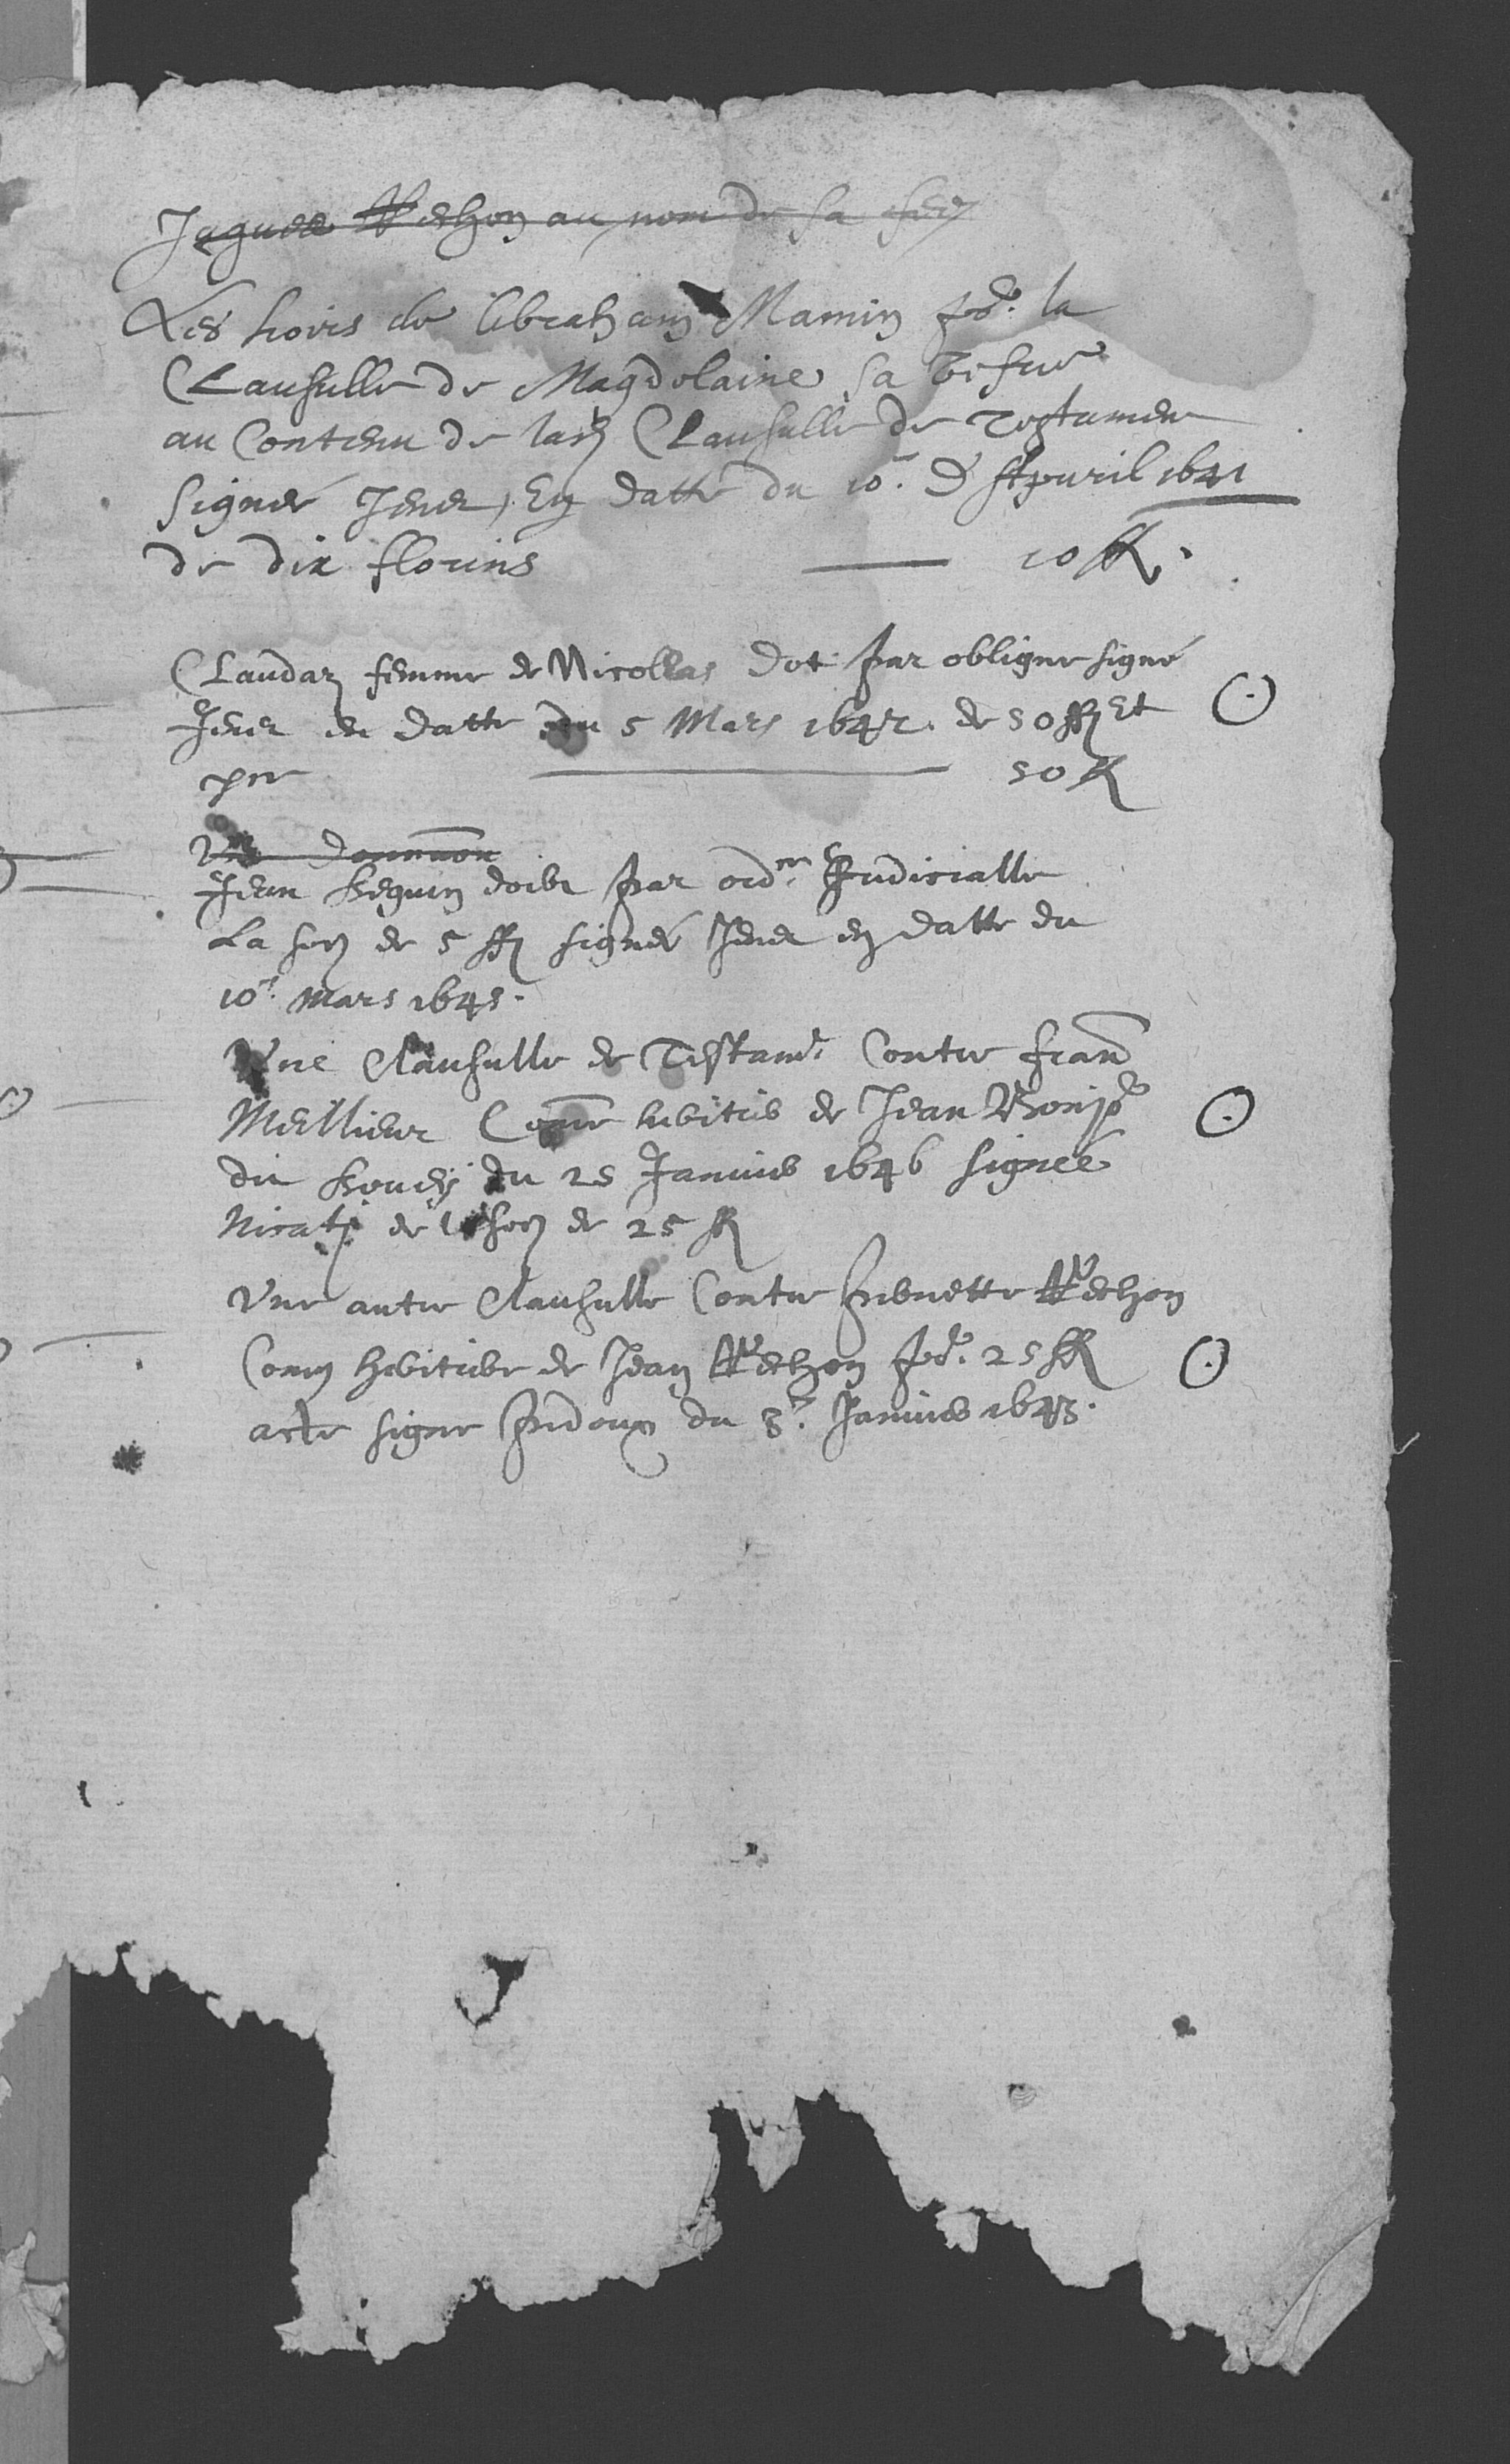 Jaques Pechon au nom de sa
Les hoirs de Abraham Mamin pr. la
Clausulle de Magdelaine sa vefue
au Contenu de lad Clausulle de Testament
Signee Jenet, En datte du 10e. D'Apuril 1641
de dix florins — 10 ff.
Claudaz femme de Nicollas dot par obligne signé
Jenet en datte du 5 Mars 1642. de 50 ff Et
pnt — 50 ff
Une donnaon
Jean Seguin doibt par ordce Judicialle
La som de 5 ff signée Jenet en datte du
10e. Mars 1645.
Une Clausulle de Testamt. Contre fran
Meillieur Come heritier de Jean
dit du 25 Januier 1646 signée
de la som de 25 ff
Une autre Clausulle Contre Pernette Pechon
Come heritiere de Jean Pechon pr. 25 ff
acte signe du 3e. Januier 1643.